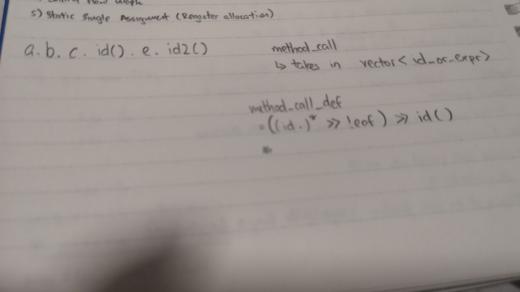 5) Static Single Assignment (Rengster allocation)
a.b.c.id().e.id2()
method_call
↳ takes in vector<id_or_expr>
method_call_def
=((id.)* >> !eof) >> id()